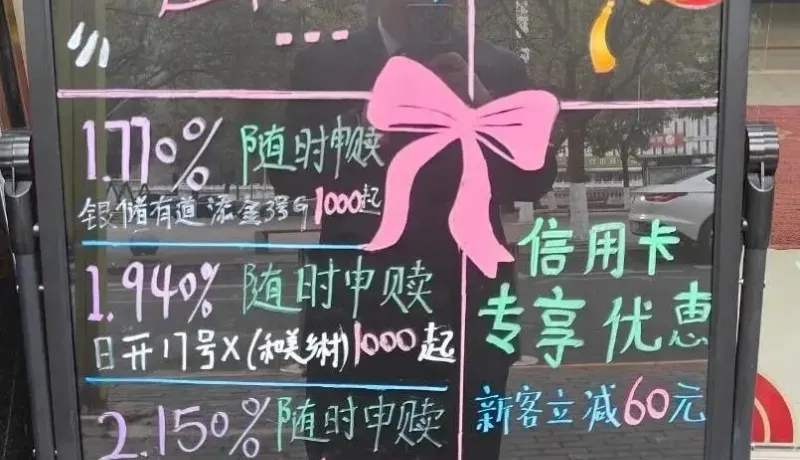 1.770% 随时申赎
银储有道添金3号G 1000起
1.940% 随时申赎
日开17号X(和美乡村)1000起
2.150% 随时申赎
信用卡
专享优惠
新客立减60元